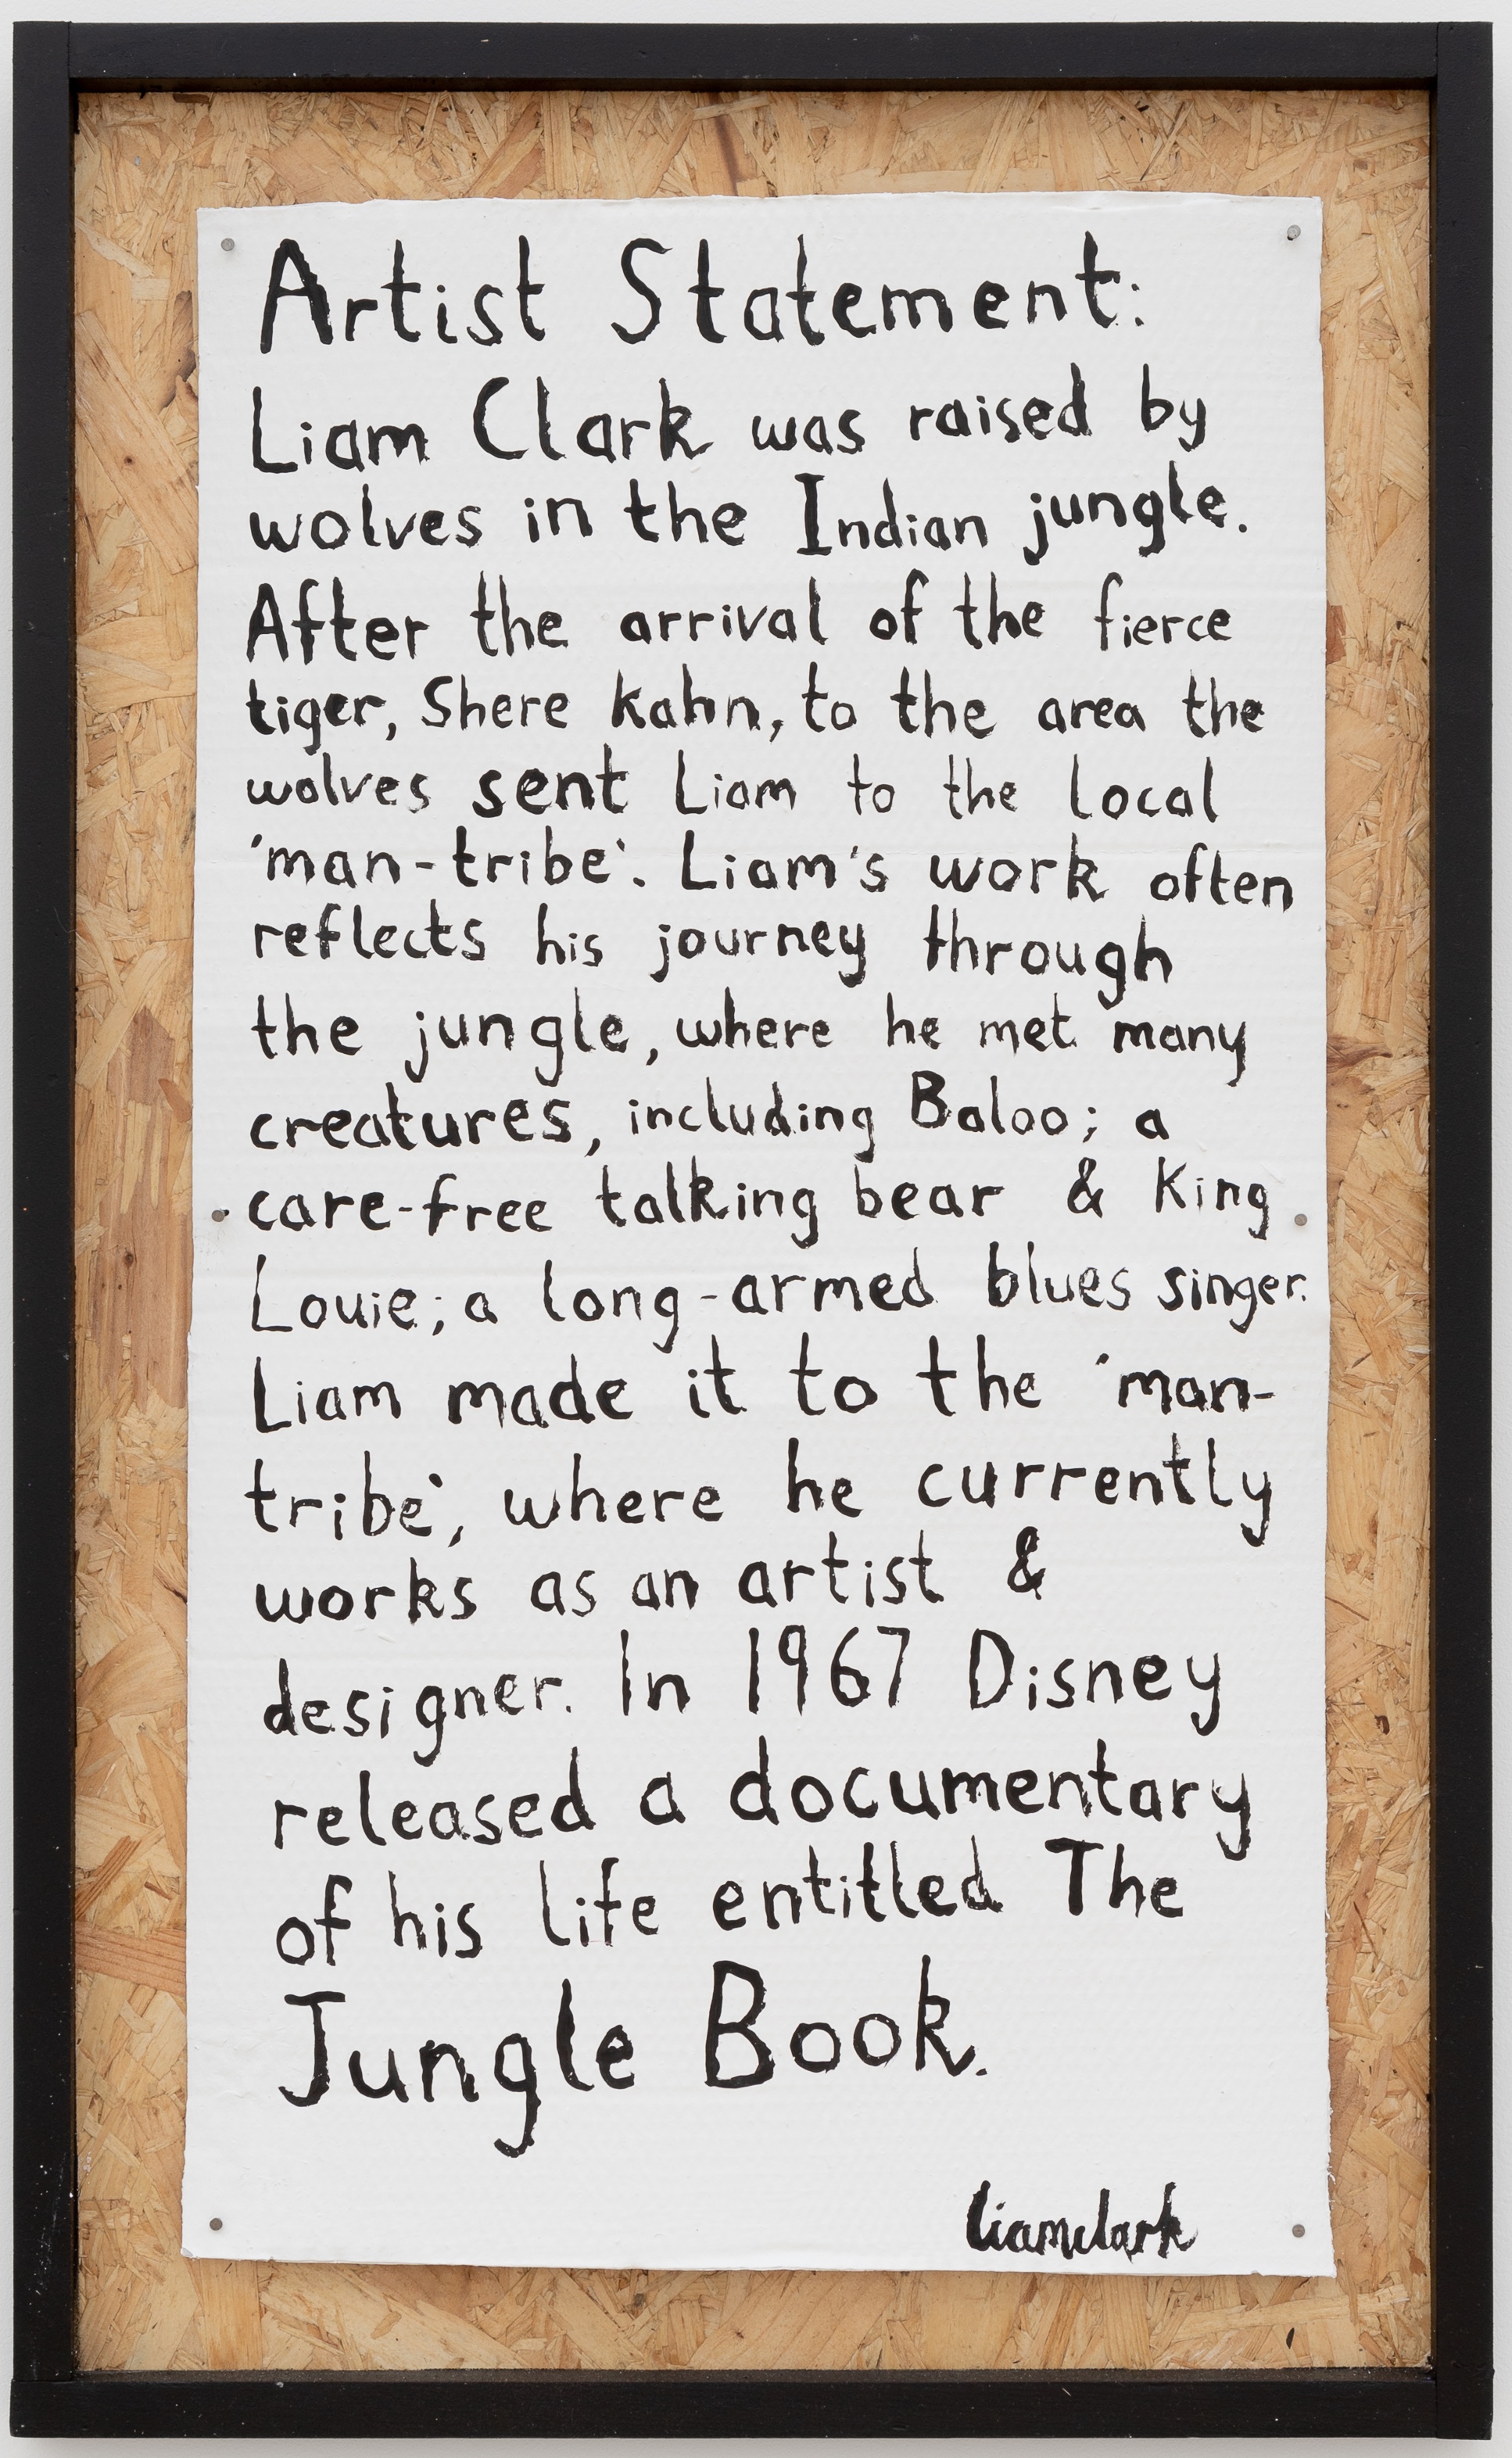 Artist Statement:
Liam Clark was raised by
wolves in the Indian jungle.
After the arrival of the fierce
tiger, Shere Kahn, to the area the
wolves sent Liam to the local
'man-tribe'. Liam's work often
reflects his journey through
the jungle, where he met many
creatures, including Baloo; a
care-free talking bear & King
Louie; a long-armed blues singer.
Liam made it to the 'man-
tribe', where he currently
works as an artist &
designer. In 1967 Disney
released a documentary
of his life entitled The
Jungle Book.
liamclark